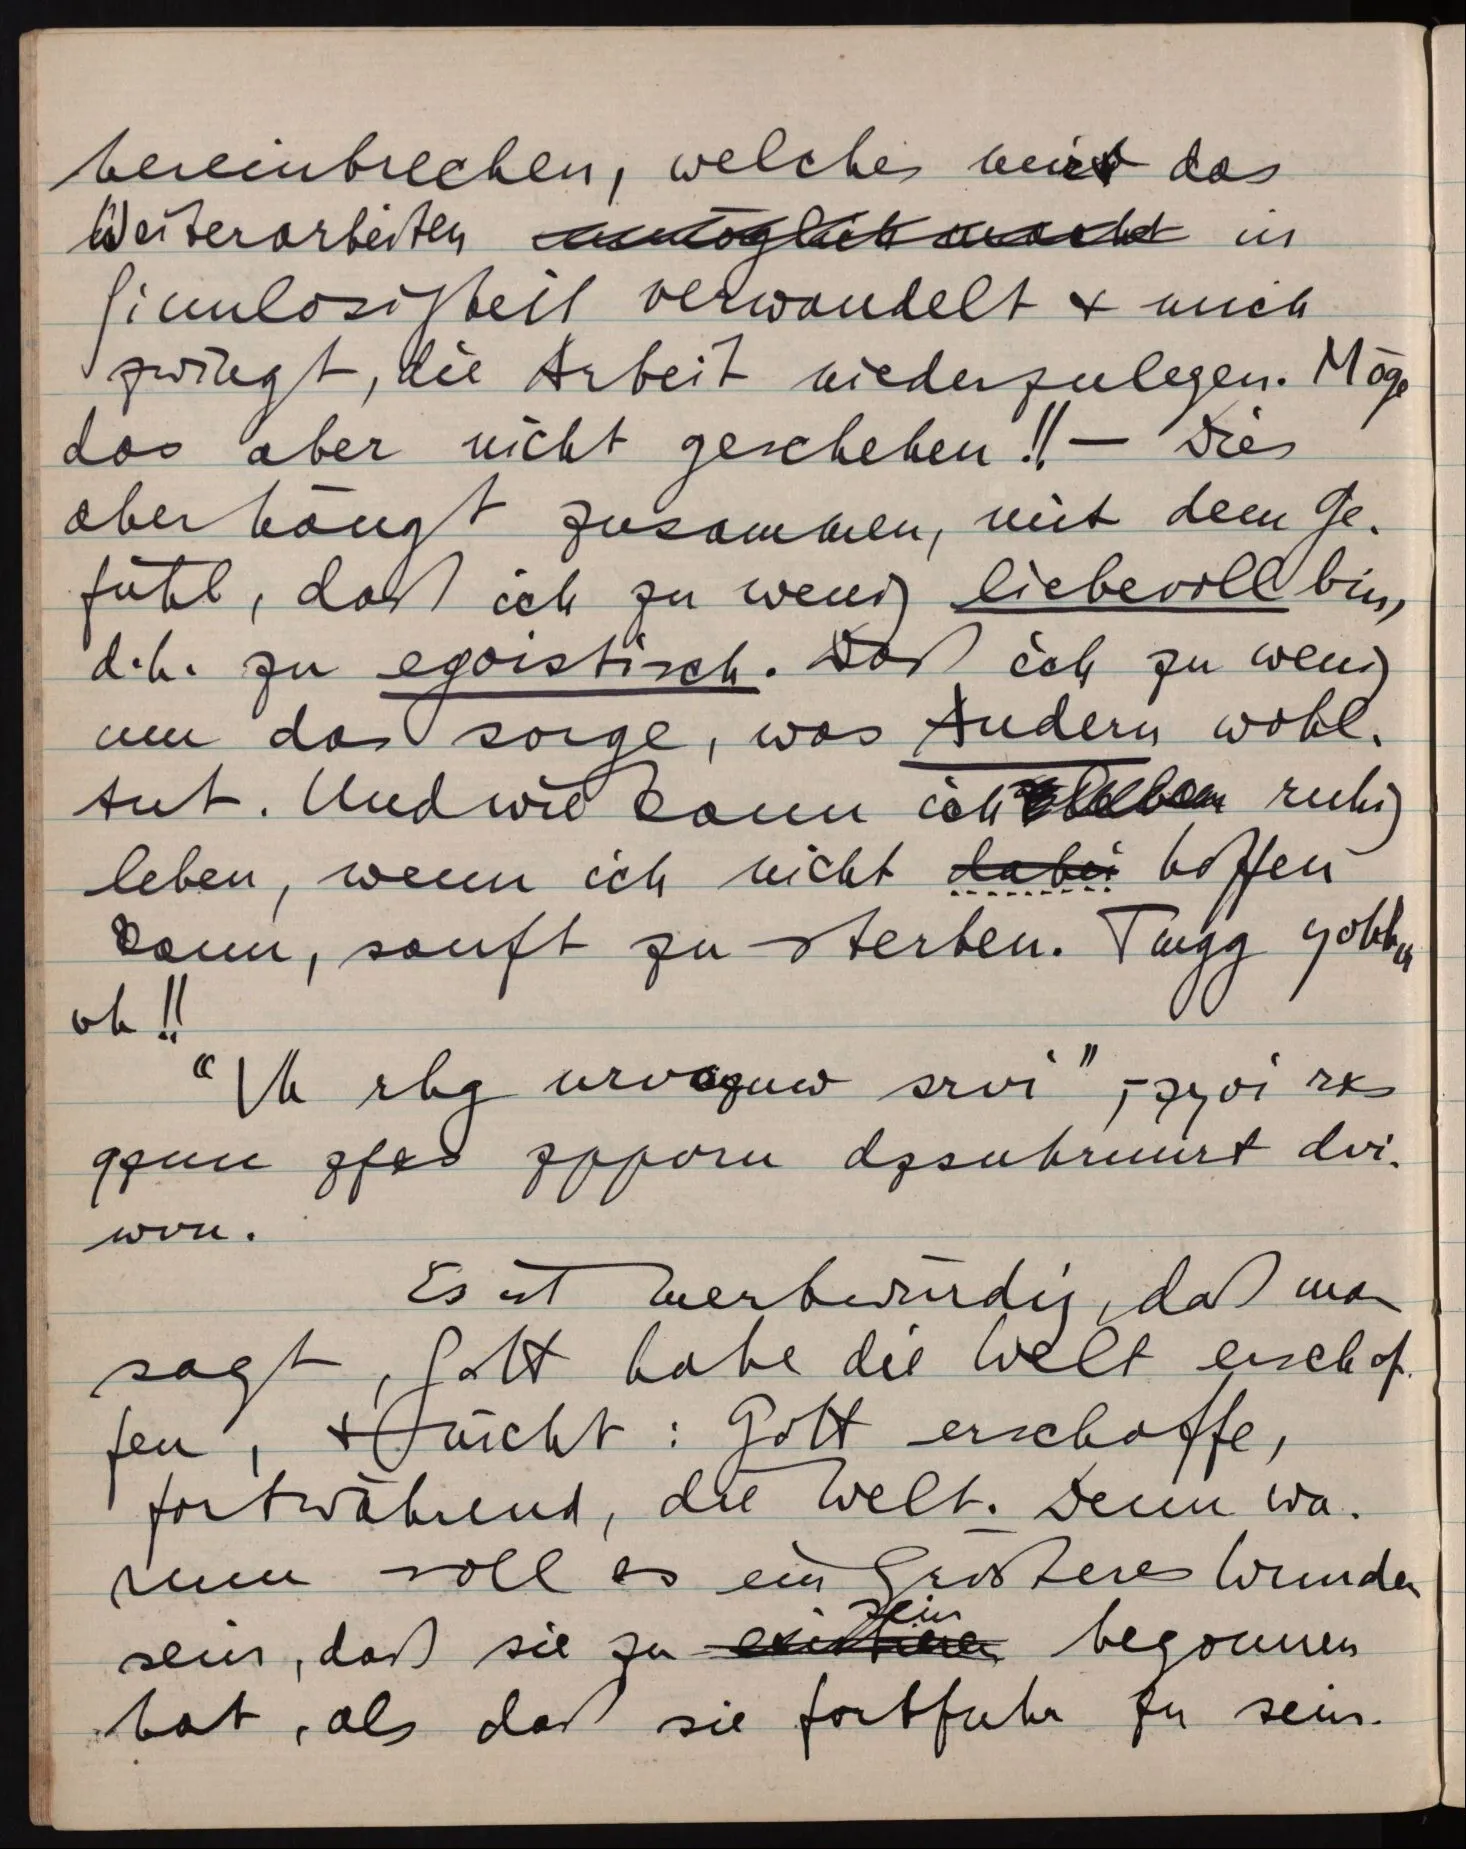 hereinbrechen, welches mir das
Weiterarbeiten unmöglich macht in
Sinnlosigkeit verwandelt & mich
zwingt, die Arbeit niederzulegen. Möge
das aber nicht geschehen!! — Dies
aber hängt zusammen, mit dem Ge-
fühl, daß ich zu wenig liebevoll bin,
d.h. zu egoistisch. Daß ich zu wenig
um das sorge, was Andern wohl-
tut. Und wie kann ich ruhig
leben, wenn ich nicht dabei hoffen
kann, sanft zu sterben. Tmgg yvhhiv
vh!!
“Vh rhg nrvoznw srvi”, – zyvi rxs
qznn zfxs zppvrn dzsnhrnnrt dvi-
wvn.
Es ist merkwürdig, daß man
sagt, Gott habe die Welt erschaf-
fen, & nicht: Gott erschaffe,
fortwährend, die Welt. Denn wa-
rum soll es ein größeres Wunder
sein, daß sie zu existieren sein begonnen
hat, als daß sie fortfuhr zu sein.